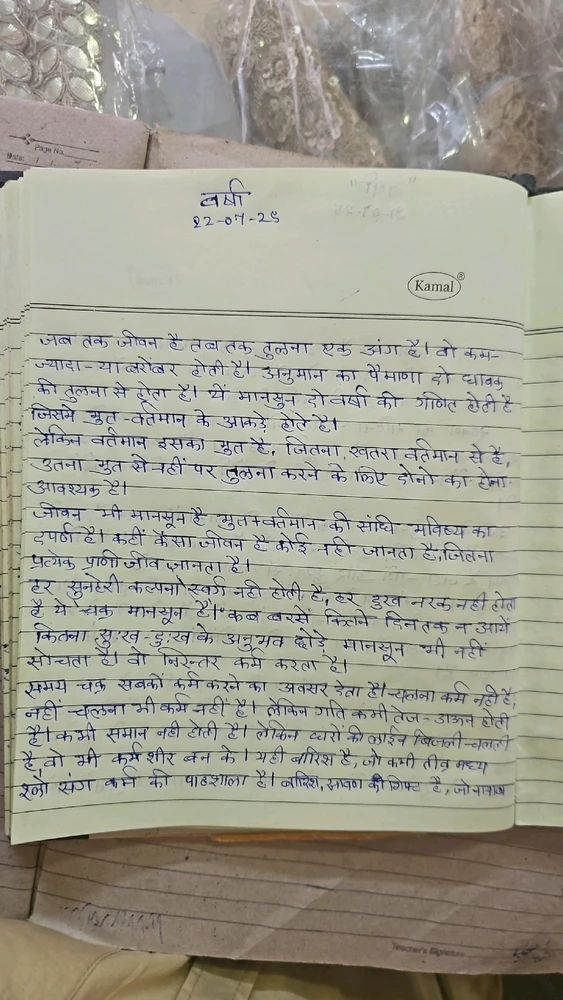 Page No.
Date: / /
वर्षा
22-07-25
Kamal®
जब तक जीवन है तब तक तुलना एक अंग है। वो कम-
ज्यादा-या बरोबर होती है। अनुमान का पैमाणा दो धावक
की तुलना से होता है। यें मानसुन दो वर्षा की गणित होती है
जिसमे भुत-वर्तमान के आकड़े होते है।
लेकिन वर्तमान इसका भुत है, जितना खतरा वर्तमान से है,
उतना भुत से नहीं पर तुलना करने के लिए दोनो का होना
आवश्यक है।
जीवन भी मानसून है भुत+वर्तमान की संधि भविष्य का
दर्पण है। कहीं कैसा जीवन है कोई नही जानता है, जितना
प्रत्येक प्राणी जीव जानता है।
हर सुनहेरी कल्पना स्वर्ग नही होती है, हर दुख नरक नही होता
है ये चक्र मानसून है। कब बरसें कितने दिन तक न आयें
कितना सुःख-दुःख के अनुभव छोड़े मानसून भी नहीं
सोचता है। वो निरन्तर कर्म करता है।
समय चक्र सबकों कर्म करने का अवसर देता है। चलना कर्म नही है,
नहीं चलना भी कर्म नही है। लेकिन गति कभी तेज-डाऊन होती
है। कभी समान नही होती है। लेकिन घरो की लाईन बिजली-चलती
है वो भी कर्मशीर बन के। यही बारिश है, जो कभी तीव्र मध्य
श्लो संग कर्म की पाठशाला है। बारिश, सावण की गिफ्ट है, जो
Teacher's Signature